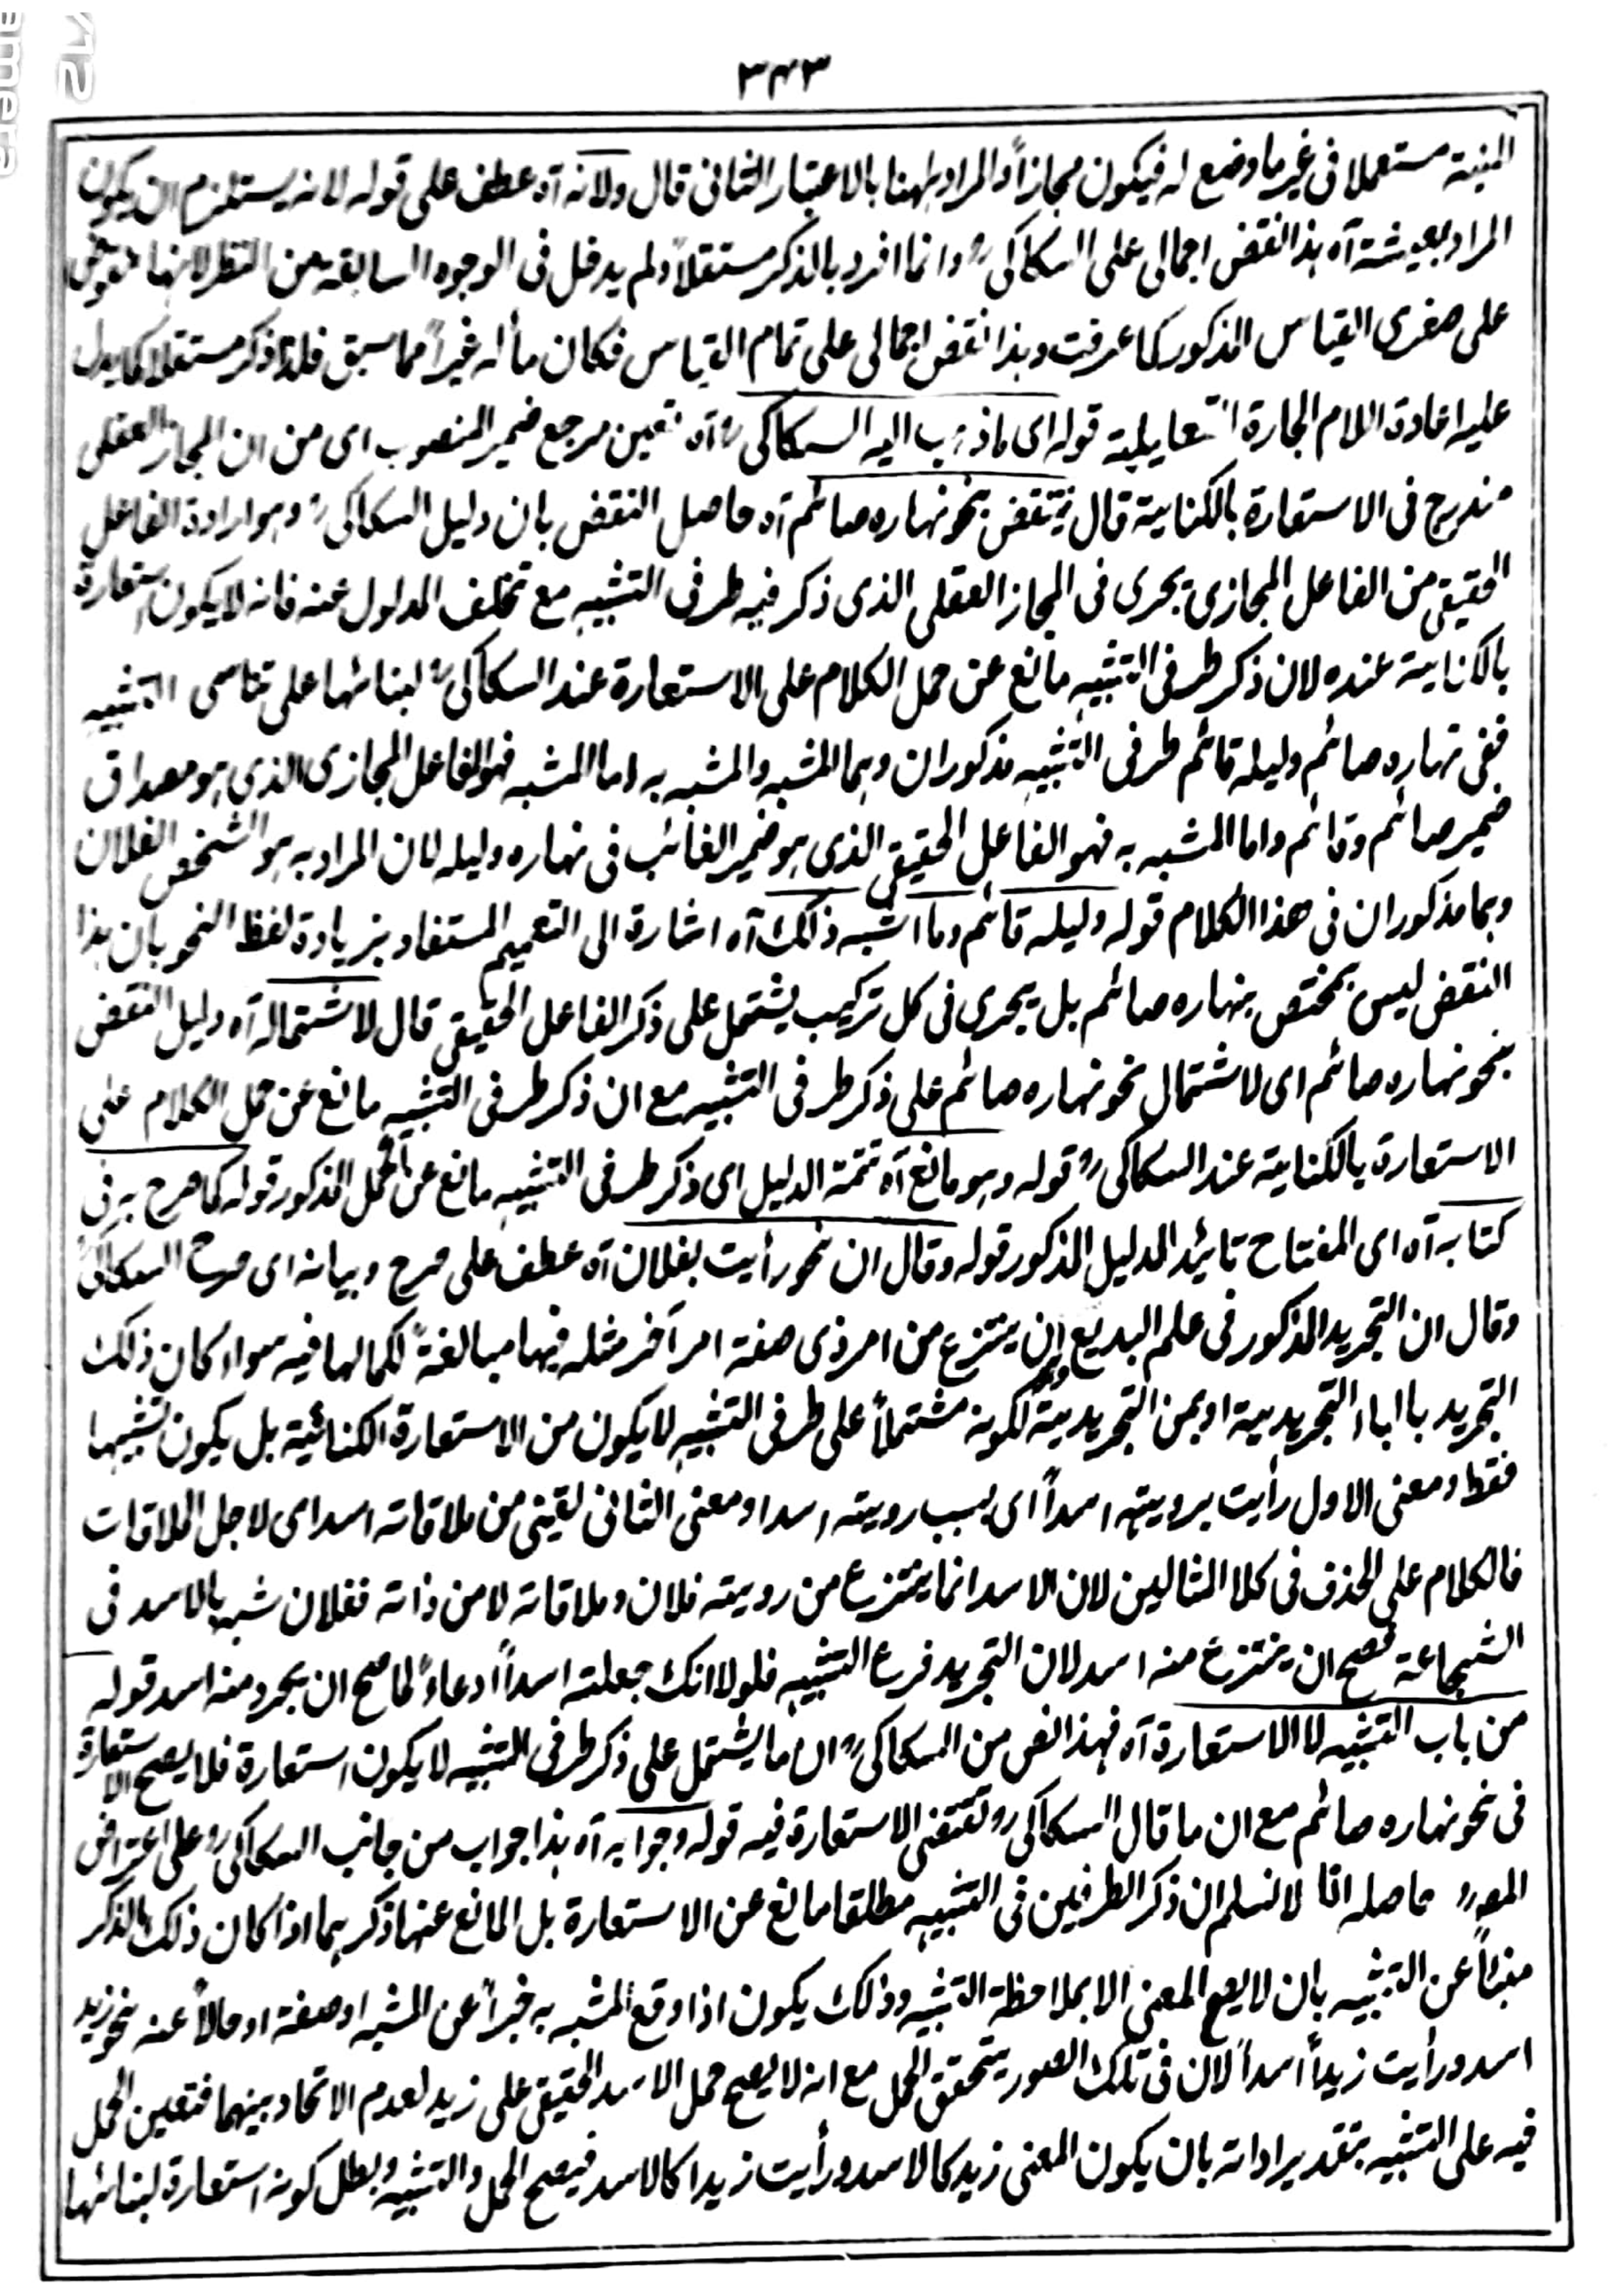 ٣٤٣
المنية مستعملا فى غير ما وضع له فيكون مجازاً والمراد ههنا بالاعتبار الثانى قال ولانه آه عطف على قوله لانه يستلزم ان يكون
المراد بعيشة آه هذا نقض اجمالى على السكاكى ؒ وانما افرد بالذكر مستقلاً ولم يدخل فى الوجوه السابقة من النظر لانها نقوض
على صغرى القياس المذكور كما عرفت وهذا نقض اجمالى على تمام القياس فكان مآله غيراً مما سبق فلذا ذكر مستقلا كما يدل
عليه اعادة اللام الجارة التعليلية قوله اى ما ذهب اليه السكاكى ؒ آه تعيين مرجع ضمير المنصوب اى من ان المجاز العقلى
مندرج فى الاستعارة بالكناية قال ينتقض بنحو نهاره صائم آه حاصل النقض بان دليل السكاكى ؒ وهو ارادة الفاعل
الحقيقى من الفاعل المجازى يجرى فى المجاز العقلى الذى ذكر فيه طرفى التشبيه مع تخلف المدلول عنه فانه لا يكون استعارة
بالكناية عنده لان ذكر طرفى التشبيه مانع عن حمل الكلام على الاستعارة عند السكاكى ؒ لبنائها على تناسى التشبيه
ففى نهاره صائم وليله قائم طرفى التشبيه مذكوران وهما المشبه والمشبه به اما المشبه فهو الفاعل المجازى الذى هو مصداق
ضمير صائم وقائم واما المشبه به فهو الفاعل الحقيقى الذى هو ضمير الغائب فى نهاره وليله لان المراد به هو الشخص الفلان
وهما مذكوران فى هذا الكلام قوله وليله قائم وما اشبه ذلك آه اشارة الى التعميم المستفاد بزيادة لفظ النحو بان هذا
النقض ليس بمختص بنهاره صائم بل يجرى فى كل تركيب يشتمل على ذكر الفاعل الحقيقى قال لاشتماله آه دليل النقض
بنحو نهاره صائم اى لاشتمال نحو نهاره صائم على ذكر طرفى التشبيه مع ان ذكر طرفى التشبيه مانع عن حمل الكلام على
الاستعارة بالكناية عند السكاكى ؒ قوله وهو مانع آه تتمة الدليل اى ذكر طرفى التشبيه مانع عن الحمل المذكور قوله كما صرح به فى
كتابه آه اى المفتاح تائيد الدليل المذكور قوله وقال ان نحو رأيت بفلان آه عطف على صرح وبيانه اى صرح السكاكى ؒ
وقال ان التجريد المذكور فى علم البديع ان ينتزع من امر ذى صفة امر آخر مثله فيها مبالغةً لكمالها فيه سواء كان ذلك
التجريد بالباء التجريدية او بمن التجريدية لكونه مشتملاً على طرفى التشبيه لا يكون من الاستعارة الكنائية بل يكون تشبيها
فقط ومعنى الاول رأيت برويته اسداً اى بسبب رويته اسدا ومعنى الثانى لقينى من ملاقاته اسد اى لاجل الملاقات
فالكلام على الحذف فى كلا المثالين لان الاسد انما ينتزع من روية فلان وملاقاته لا من ذاته ففلان شبه بالاسد فى
الشجاعة فصح ان ينتزع منه اسد لان التجريد فرع التشبيه فلولا انك جعلته اسداً ادعاءً لما صح ان يجرد منه اسد قوله
من باب التشبيه لا الاستعارة آه فهذا نص من السكاكى ؒ ان ما يشتمل على ذكر طرفى التشبيه لا يكون استعارة فلا يصح الاستعارة
فى نحو نهاره صائم مع ان ما قال السكاكى ؒ تقتضى الاستعارة فيه قوله وجوابه آه هذا جواب من جانب السكاكى ؒ على اعتراض
المورد حاصله انا لا نسلم ان ذكر الطرفين فى التشبيه مطلقا مانع عن الاستعارة بل المانع عنها ذكرهما اذا كان ذلك الذكر
منبئاً عن التشبيه بان لا يصح المعنى الا بملاحظة التشبيه وذلك يكون اذا وقع المشبه به خبراً عن المشبه او صفة او حالاً عنه نحو زيد
اسد ورأيت زيداً اسداً لان فى تلك الصور يتحقق الحمل مع انه لا يصح حمل الاسد الحقيقى على زيد لعدم الاتحاد بينهما فتعين الحمل
فيه على التشبيه بتقدير اداته بان يكون المعنى زيد كالاسد ورأيت زيدا كالاسد فيصح الحمل والتشبيه وبطل كونه استعارة لبنائها